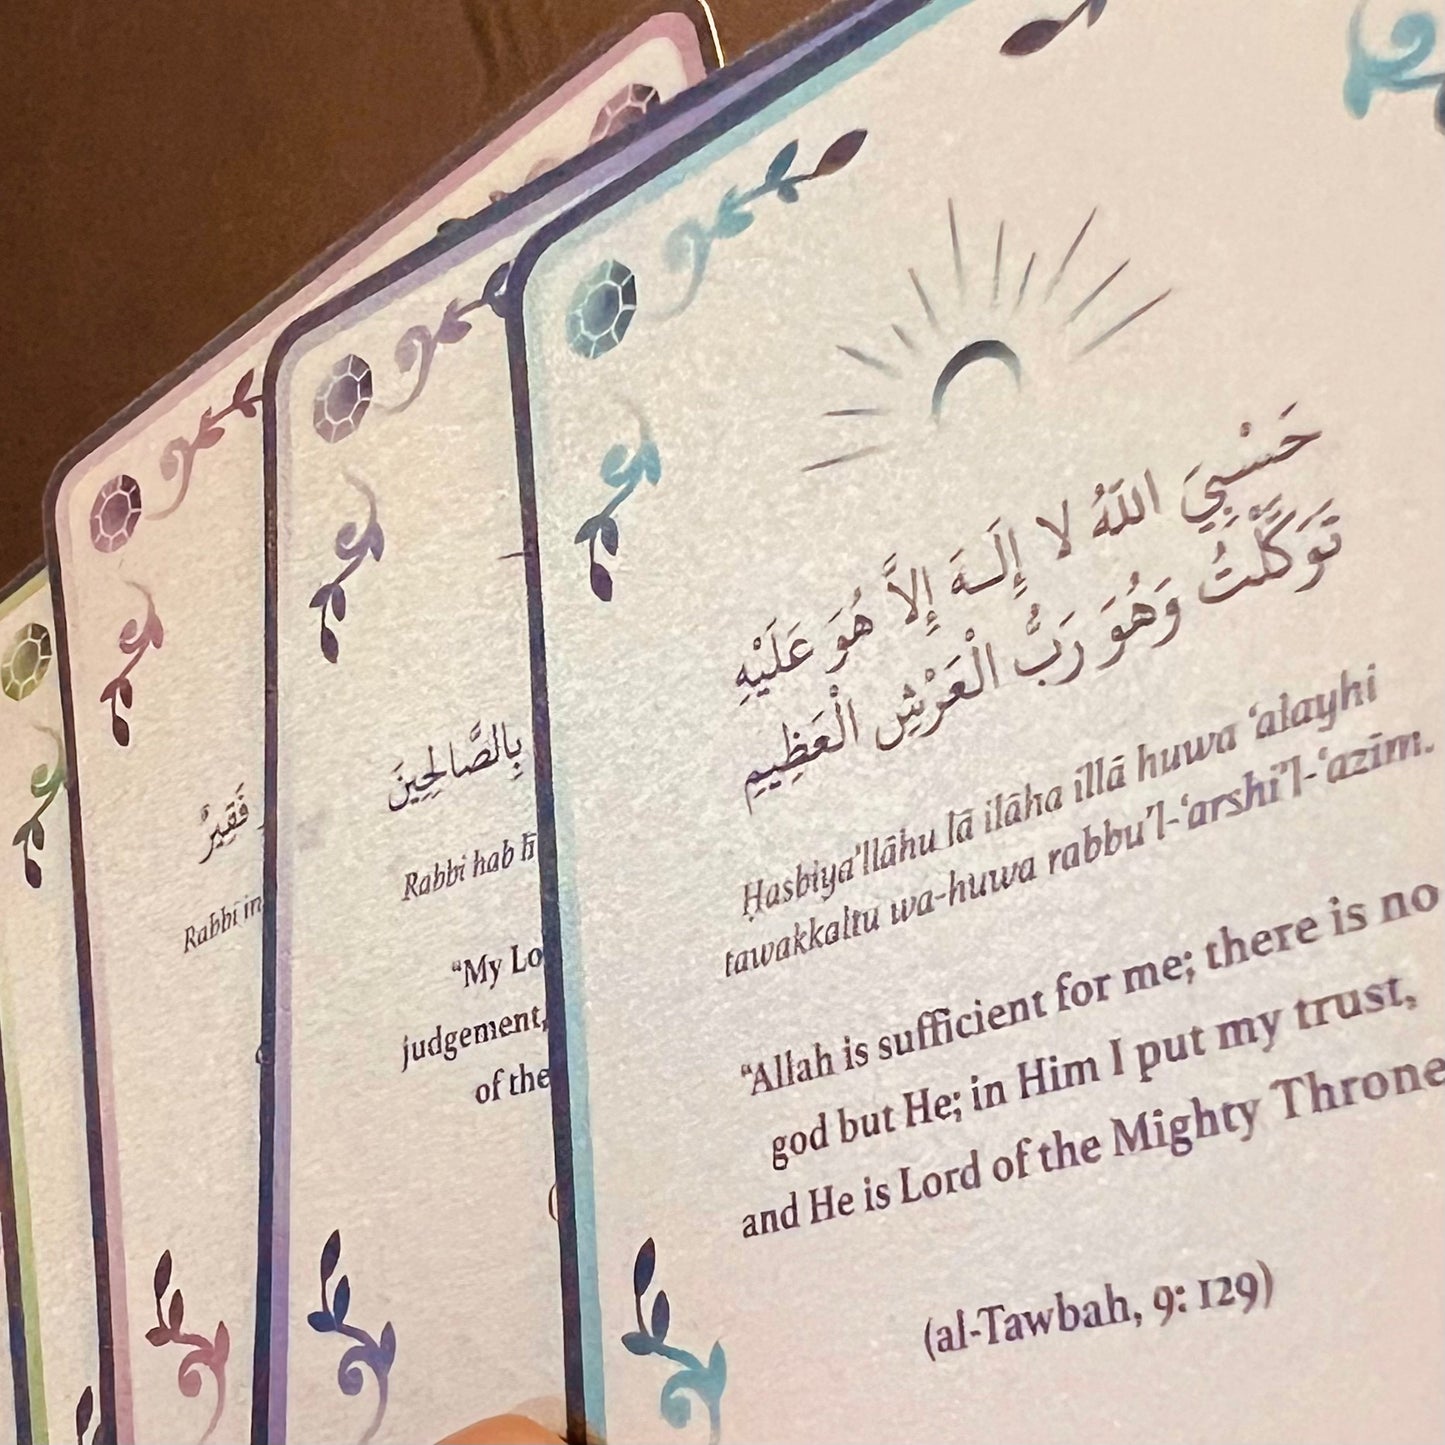 حَسْبِيَ اللهُ لا إِلَـهَ إِلاَّ هُوَ عَلَيْهِ
تَوَكَّلْتُ وَهُوَ رَبُّ الْعَرْشِ الْعَظِيمِ
Ḥasbiya’llāhu lā ilāha illā huwa ‘alayhi
tawakkaltu wa-huwa rabbu’l-‘arshi’l-‘azīm.
“Allah is sufficient for me; there is no
god but He; in Him I put my trust,
and He is Lord of the Mighty Throne
(al-Tawbah, 9: 129)
بِالصَّالِحِينَ
Rabbi hab lī
“My Lo
judgement,
of the
فَقِيرٌ
Rabbi in